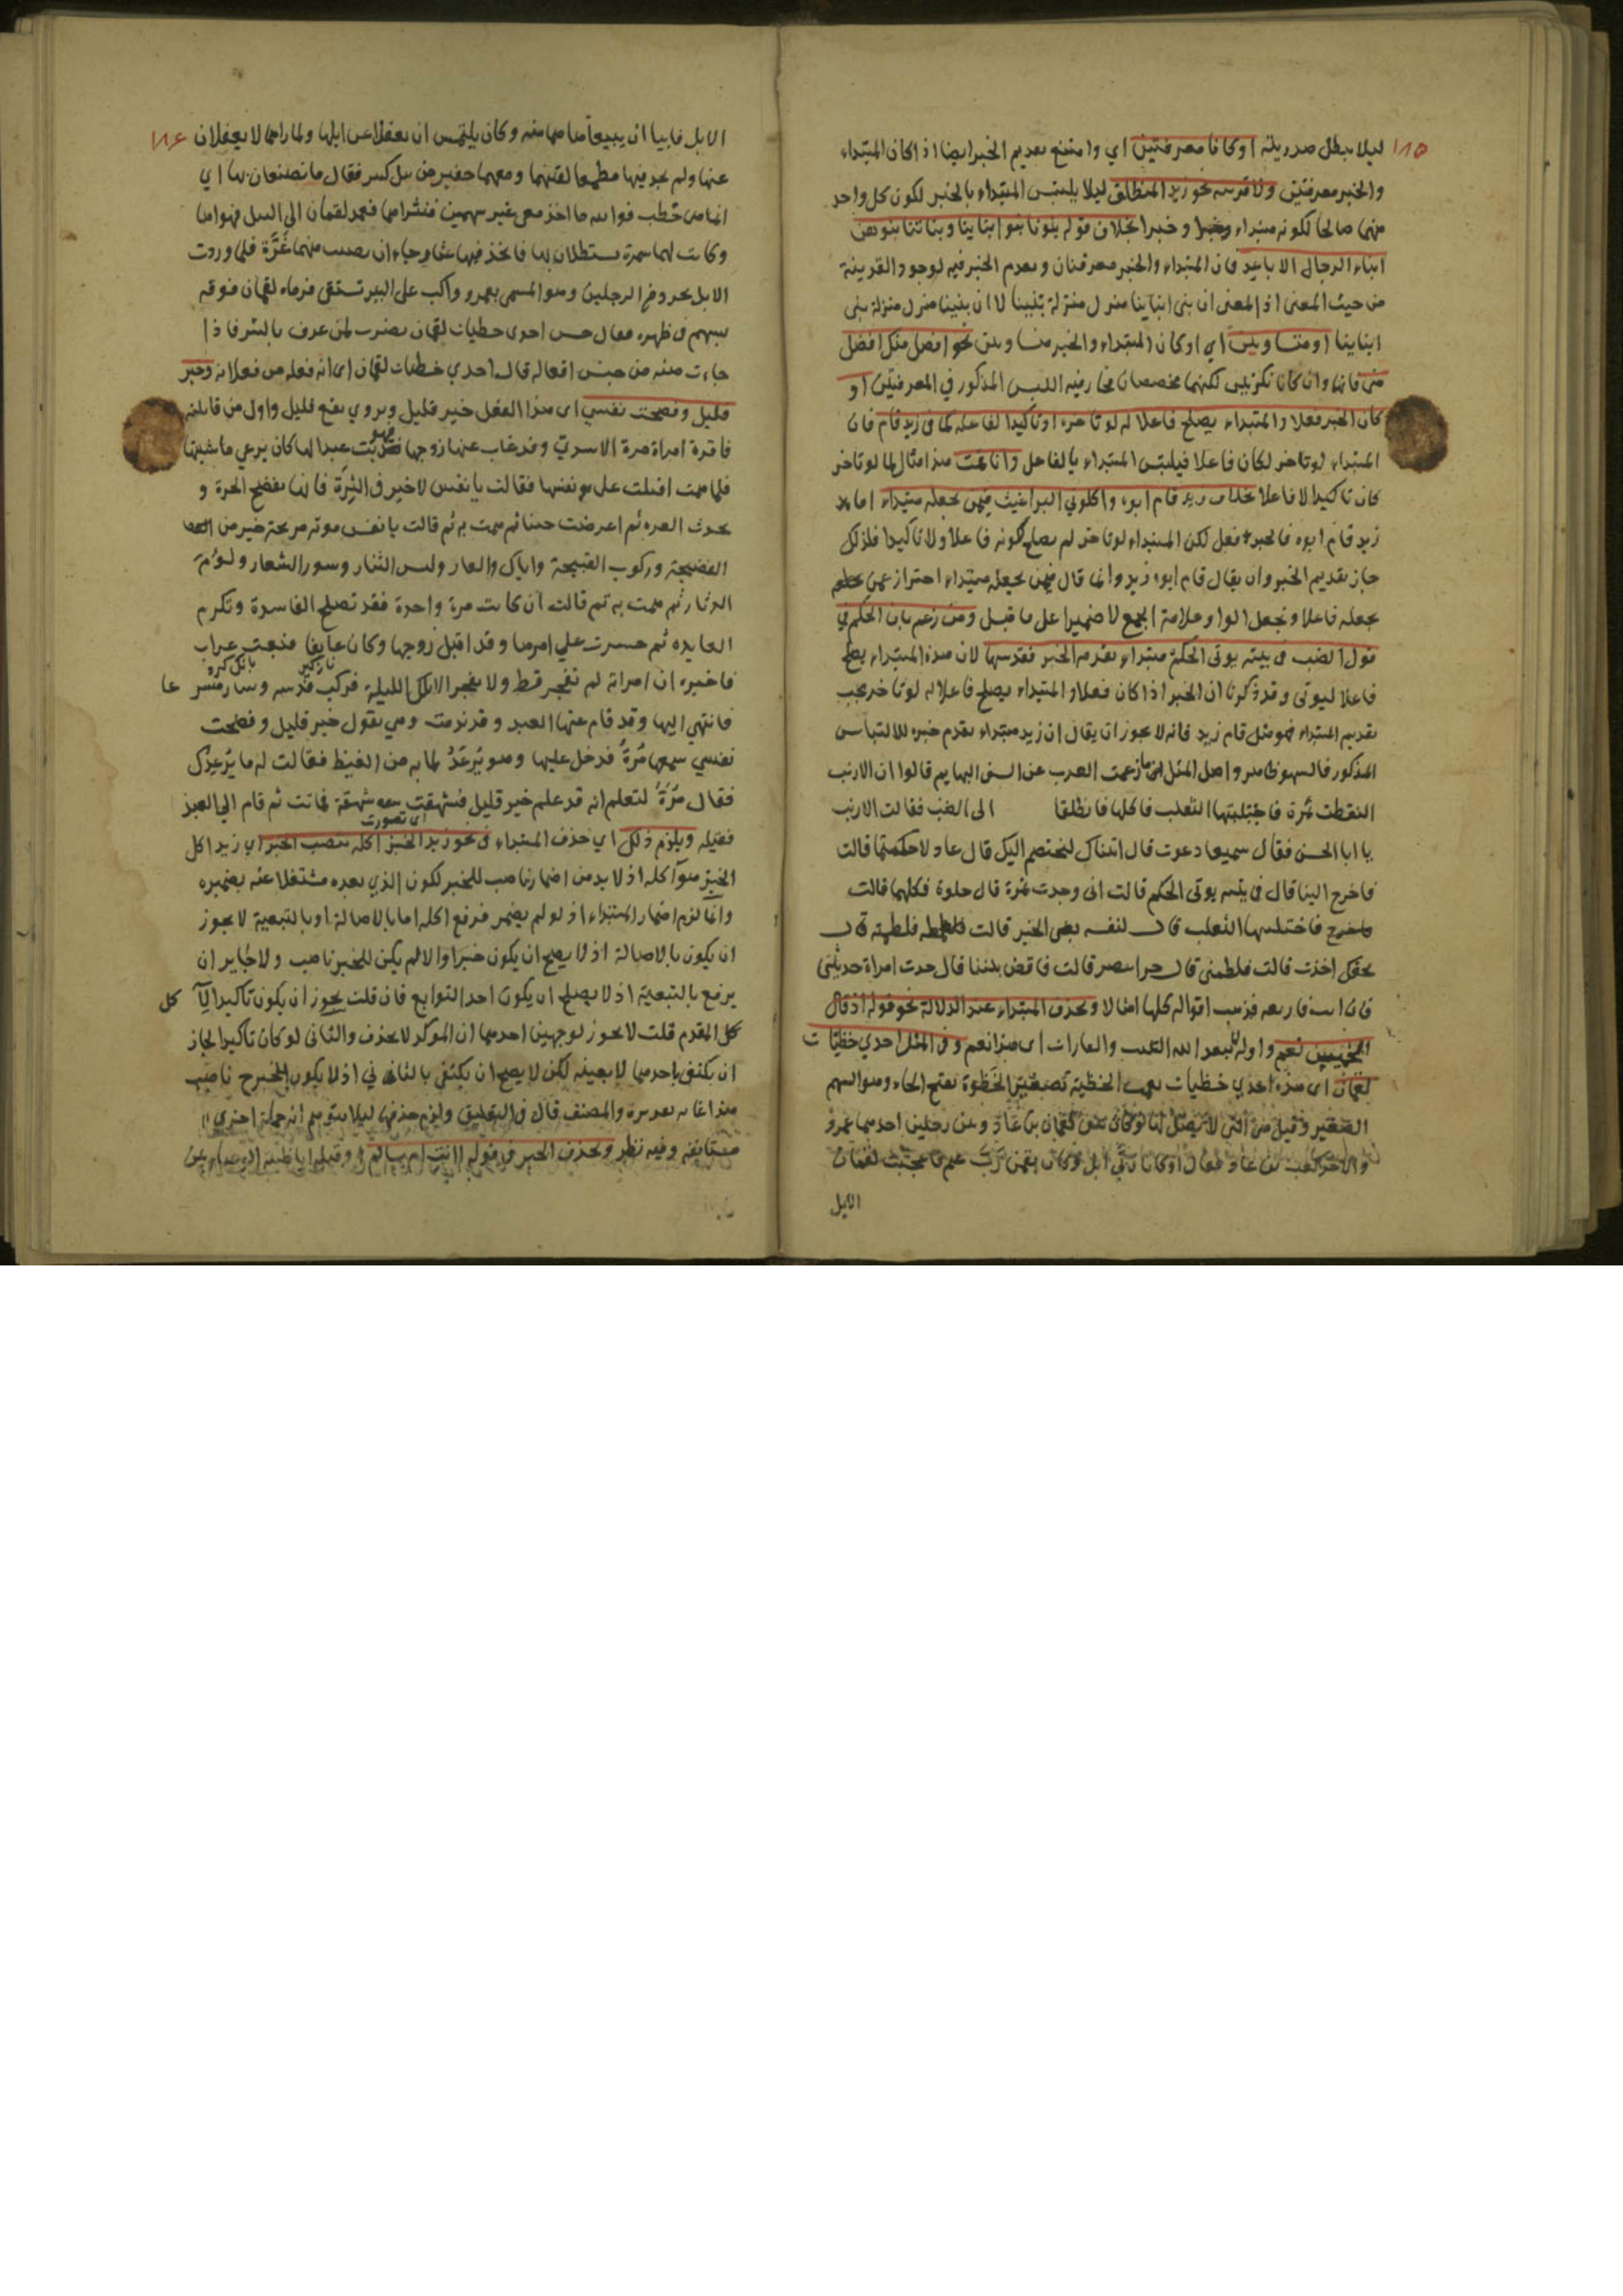 ١٨٥
ليلا يبطل صدريته او كانا معرفتين اي وامتنع تقديم الخبر ايضا اذا كان المبتداء
والخبر معرفتين ولا قرينه نحو زيد المنطلق ليلا يلتبس المبتداء بالخبر لكون كل واحد
منهما صالحا لكونه مبتداء وخبرا بخلاف قوله بنونا بنوا ابناينا وبناتنا بنوهن
ابناء الرجال الاباعد فان المبتداء والخبر معرفتان وتقدم الخبر فيه لوجود القرينة
من حيث المعنى اذ المعنى ان بنى ابناينا منزل منزلة بنينا لا ان بنينا منزل منزلة بنى
ابناينا او متساويين اي او كان المبتداء والخبر متساويين نحو افضل منك افضل
منى فانهما وان كانا نكرتين لكنهما مخصصان فجا فيه اللبس المذكور في المعرفتين او
كان الخبر فعلا والمبتداء يصلح فاعلا له لو تاخر او تاكيدا لفاعله كما فى زيد قام فان
المبتداء لو تاخر لكان فاعلا فيلتبس المبتداء بالفاعل وانا قمت هذا مثال لما لو تاخر
كان تاكيدا لا فاعلا بخلاف زيد قام ابوه واكلوني البراغيث فيمن يجعله مبتداء اما
زيد قام ابوه فالخبر فعل لكن المبتداء لو تاخر لم يصلح لكونه فاعلا ولا تاكيدا فلذلك
جاز تقديم الخبر وان يقال قام ابوه زيد وانما قال فيمن يجعله مبتداء احتراز عمن
يجعله فاعلا ويجعل الواو علامة الجمع لا ضميرا على ما قيل ومن زعم بان الحكم في
قول الضب فى بيته يوتى الحكم مبتداء تقدمه الخبر فقد سها لان هذه المبتداء يصلح
فاعلا ليوتى وقد ذكرنا ان الخبر اذا كان فعلا والمبتداء يصلح فاعلا له لو تاخر يجب
تقديم المبتداء فهو مثل قام زيد فانه لا يجوز ان يقال ان زيد مبتداء تقدم خبره للالتباس
المذكور فالسهو ظاهر واصل المثل فيما زعمت العرب عن السن البهايم قالوا ان الارنب
التقطت تمرة فاختلسها الثعلب فاكلها فانطلقا الى الضب فقالت الارنب
يا ابا الحسن فقال سميعا دعوت قال اتيناك لنختصم اليك قال عادلا حكمتما قالت
فاخرج الينا قال فى بيته يوتى الحكم قالت انى وجدت تمرة قال حلوة فكلها قالت
فاختلسها الثعلب قال لنفسه بغى الخير قالت فلطمته قال
بحقك اخذت قالت فلطمنى قال حر انتصر قالت فاقض بيننا قال حدث امراة حديثين
فان ابت فاربعه فذهبت اقواله كلها امثالا ويحذف المبتداء عند الدلالة نحو قوله اذ قال
الخميس نعم واوله لا يبعد الله التلبب والغارات اى هذا نعم وفى المثل احدي حظيات
لقمان اى هذه احدي حظيات لقمان الحظية تصغير الحظوة بفتح الحاء وهو السهم
الصغير وقيل هى التى لا نصل لها وكان بين لقمان بن عاد وبين رجلين احدهما عمرو
والاخر كعب
الابل
١٨٦
الابل فابيا ان يبيعا وكان يلتمس ان يغفلا عن ابلهما ولما راهما لا يغفلان
عنها ولم يجد فيها مطمعا لقيهما ومعهما فقال ما تصنعان بها اي
فوالله ما اخذ معى غير سهمين فنثراهما فعمد لقمان الى النبل
وكانت لهما سمرة يستظلان بها فاتخذ فيها رجاء ان يصيب منهما غرة فلما وردت
الابل تجرد الرجلين وهو المسمى بعمرو واكب على البير يستقى فرماه لقمان من فوقه
بسهم فى ظهره فقال حس احدى حظيات لقمان يضرب لمن عرف بالشر فاذا
جاءت منه من جنس افعاله قال احدي حظيات لقمان اى انه فعله من فعلاته وخير
قليل وفضحت نفسي اى هذا الفعل خير قليل ويروي نفع قليل واول من قالته
فاقرة امراة مرة الاسدي وقد غاب عنها زوجها فهويت عبدا لها كان يرعي ماشيتها
فلما همت اقبلت على نفسها فقالت يا نفس لا خير فى الشرة فانها تفضح الحرة و
تحدث العره ثم اعرضت حينا ثم همت به ثم قالت يا نفس موته مريحة خير من
الفضيحة وركوب القبيحة واياك والعار ولبس الشنار وسوء الشعار ولؤم
الدثار ثم همت به ثم قالت ان كانت مرة واحدة فقد تصلح الفاسدة وتكرم
العايده ثم جسرت علي امرها وقد اقبل زوجها وكان عايفا فنعب غراب
فاخبره ان امراته لم تفجر قط ولا تفجر الا تلك الليلة فركب فرسه وسار
فانتهي اليها وقد قام عنها العبد وقد ندمت وهي تقول خير قليل وفضحت
نفسي سمعها مرة فدخل عليها وهو يرعد لما به من الغيظ فقالت له ما يرعدك
فقال مرة لتعلم انه قد علم خير قليل فشهقت شهقة فماتت ثم قام الي العبد
فقتله ويلزم ذلك اي حذف المبتداء فى نحو زيد الخبز اكله بنصب الخبز اي زيد اكل
الخبز هو اكله اذ لا بد من اضمار ناصب للخبز لكون الذي بعده مشتغلا عنه بضميره
وانما لزم اضمار المبتداء اذ لو لم يضمر فرفع اكله اما بالاصالة او بالتبعية لا يجوز
ان يكون بالاصالة اذ لا يصح ان يكون خبرا والا لم يكن للخبز ناصب ولا جايز ان
يرفع بالتبعية اذ لا يصلح ان يكون احد التوابع فان قلت يجوز ان يكون تاكيدا لآ كل
المقدم قلت لا يجوز لوجهين احدهما ان الموكد لا يحذف والثانى لو كان تاكيدا لجاز
ان يكتفى باحدهما لا بعينه لكن لا يصح ان يكتفى بالثانى اذ لا يكون للخبز ح ناصب
هذا غاية تقديره والمصنف قال فى التعليق ولزم حذفها ليلا يتوهم انه جملة اخري
مستانفة وفيه نظر ويحذف الخبر فى قوله اانت ام سالم